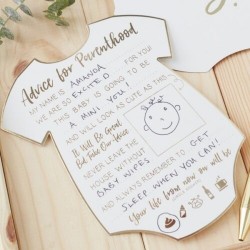 Advice for Parenthood
MY NAME IS AMANDA
WE ARE SO EXCITED FOR YOU
THIS BABY IS GOING TO BE
A MINI YOU
AND WILL LOOK AS CUTE AS THIS
It Will Be Great
But Take Our Advice
NEVER LEAVE THE
HOUSE WITHOUT
BABY WIPES
AND ALWAYS REMEMBER TO GET
SLEEP WHEN YOU CAN!
Your life from now on will be